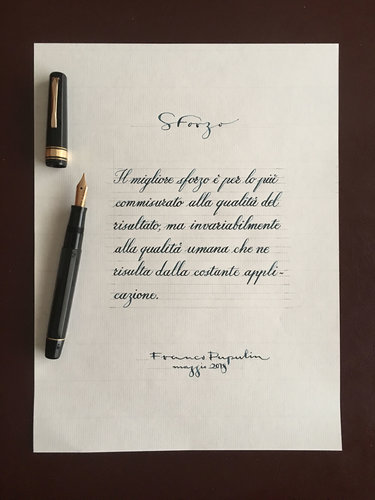 Sforzo
Il migliore sforzo è per lo più
commisurato alla qualità del
risultato, ma invariabilmente
alla qualità umana che ne
risulta dalla costante appli-
cazione.
Franco Pupulin
maggio 2019